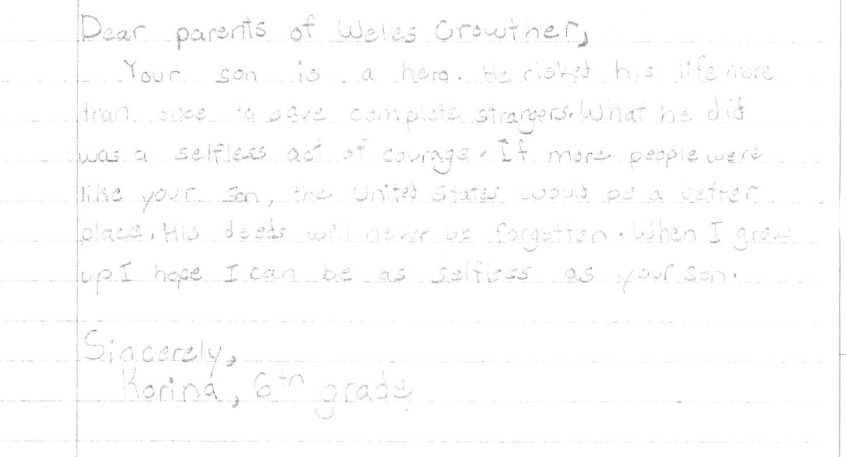 Dear parents of Weles Crowther,
Your son is a hero. He risked his life more
than once to save complete strangers. What he did
was a selfless act of courage. If more people were
like your son, the United States would be a better
place. His deeds will never be forgotten. When I grow
up I hope I can be as selfless as your son.
Sincerely,
Korina, 6th grade